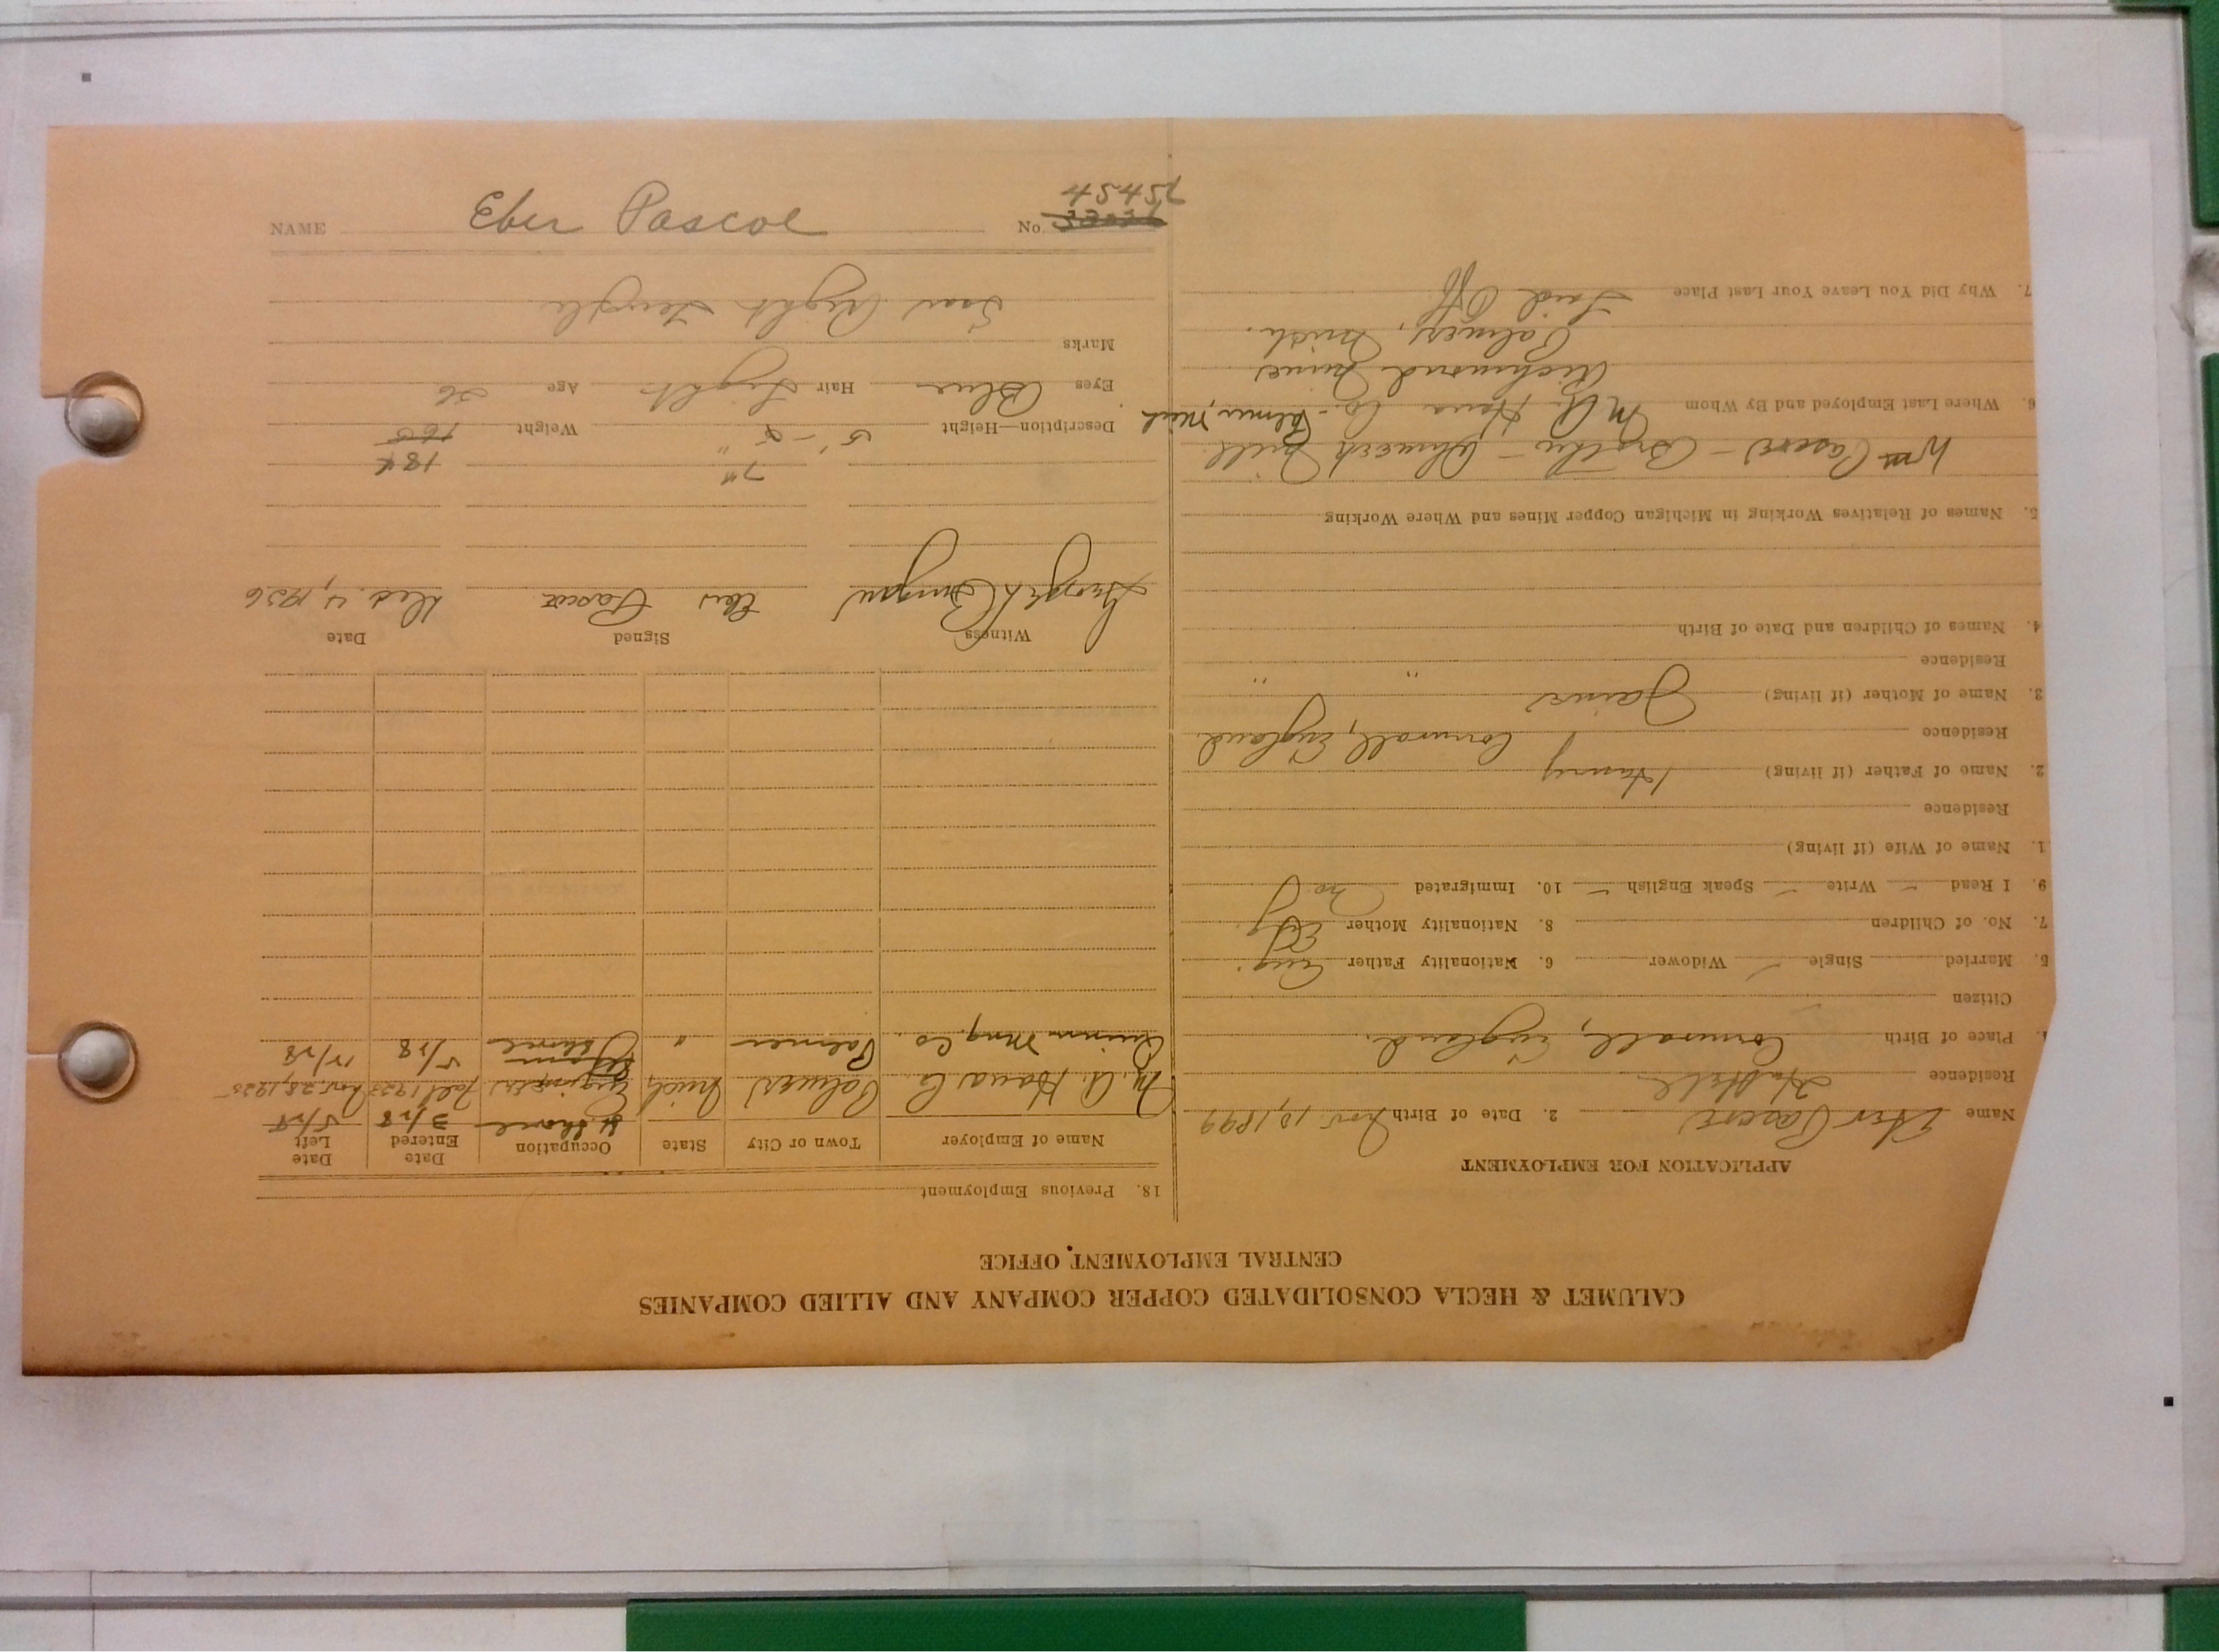 NAME Eber Pascoe No. 45452
CALUMET & HECLA CONSOLIDATED COPPER COMPANY AND ALLIED COMPANIES
CENTRAL EMPLOYMENT OFFICE
APPLICATION FOR EMPLOYMENT
Name Eber Pascoe 2. Date of Birth Nov. 1899
Residence
Place of Birth Cornwall, England.
Citizen
5. Married Single Widower 6. Nationality Father Eng.
7. No. of Children 8. Nationality Mother Eng.
9. I Read Write Speak English 10. Immigrated
1. Name of Wife (if living)
Residence
2. Name of Father (if living) Henry
Residence Cornwall, England.
3. Name of Mother (if living)
Residence " "
4. Names of Children and Date of Birth
5. Names of Relatives Working in Michigan Copper Mines and Where Working
Wm Pascoe - Brother - Ahmeek Mill
6. Where Last Employed and By Whom M. A. Hana Co. - Palmer, Mich
Richmond Mines
Palmer, Mich.
7. Why Did You Leave Your Last Place Laid Off
18. Previous Employment
Name of Employer Town or City State Occupation Date Entered Date Left
3/28 5/28
M. A. Hana Co. Palmer Mich. Nov. 28, 1925
Mng. Co. Palmer " 5/28
Witness Signed Date
Eber Pascoe Dec. 4, 1926
7" 184
Description—Height 5' - 8" Weight 165
Eyes Blue Hair Light Age 26
Marks
Scar Right Temple